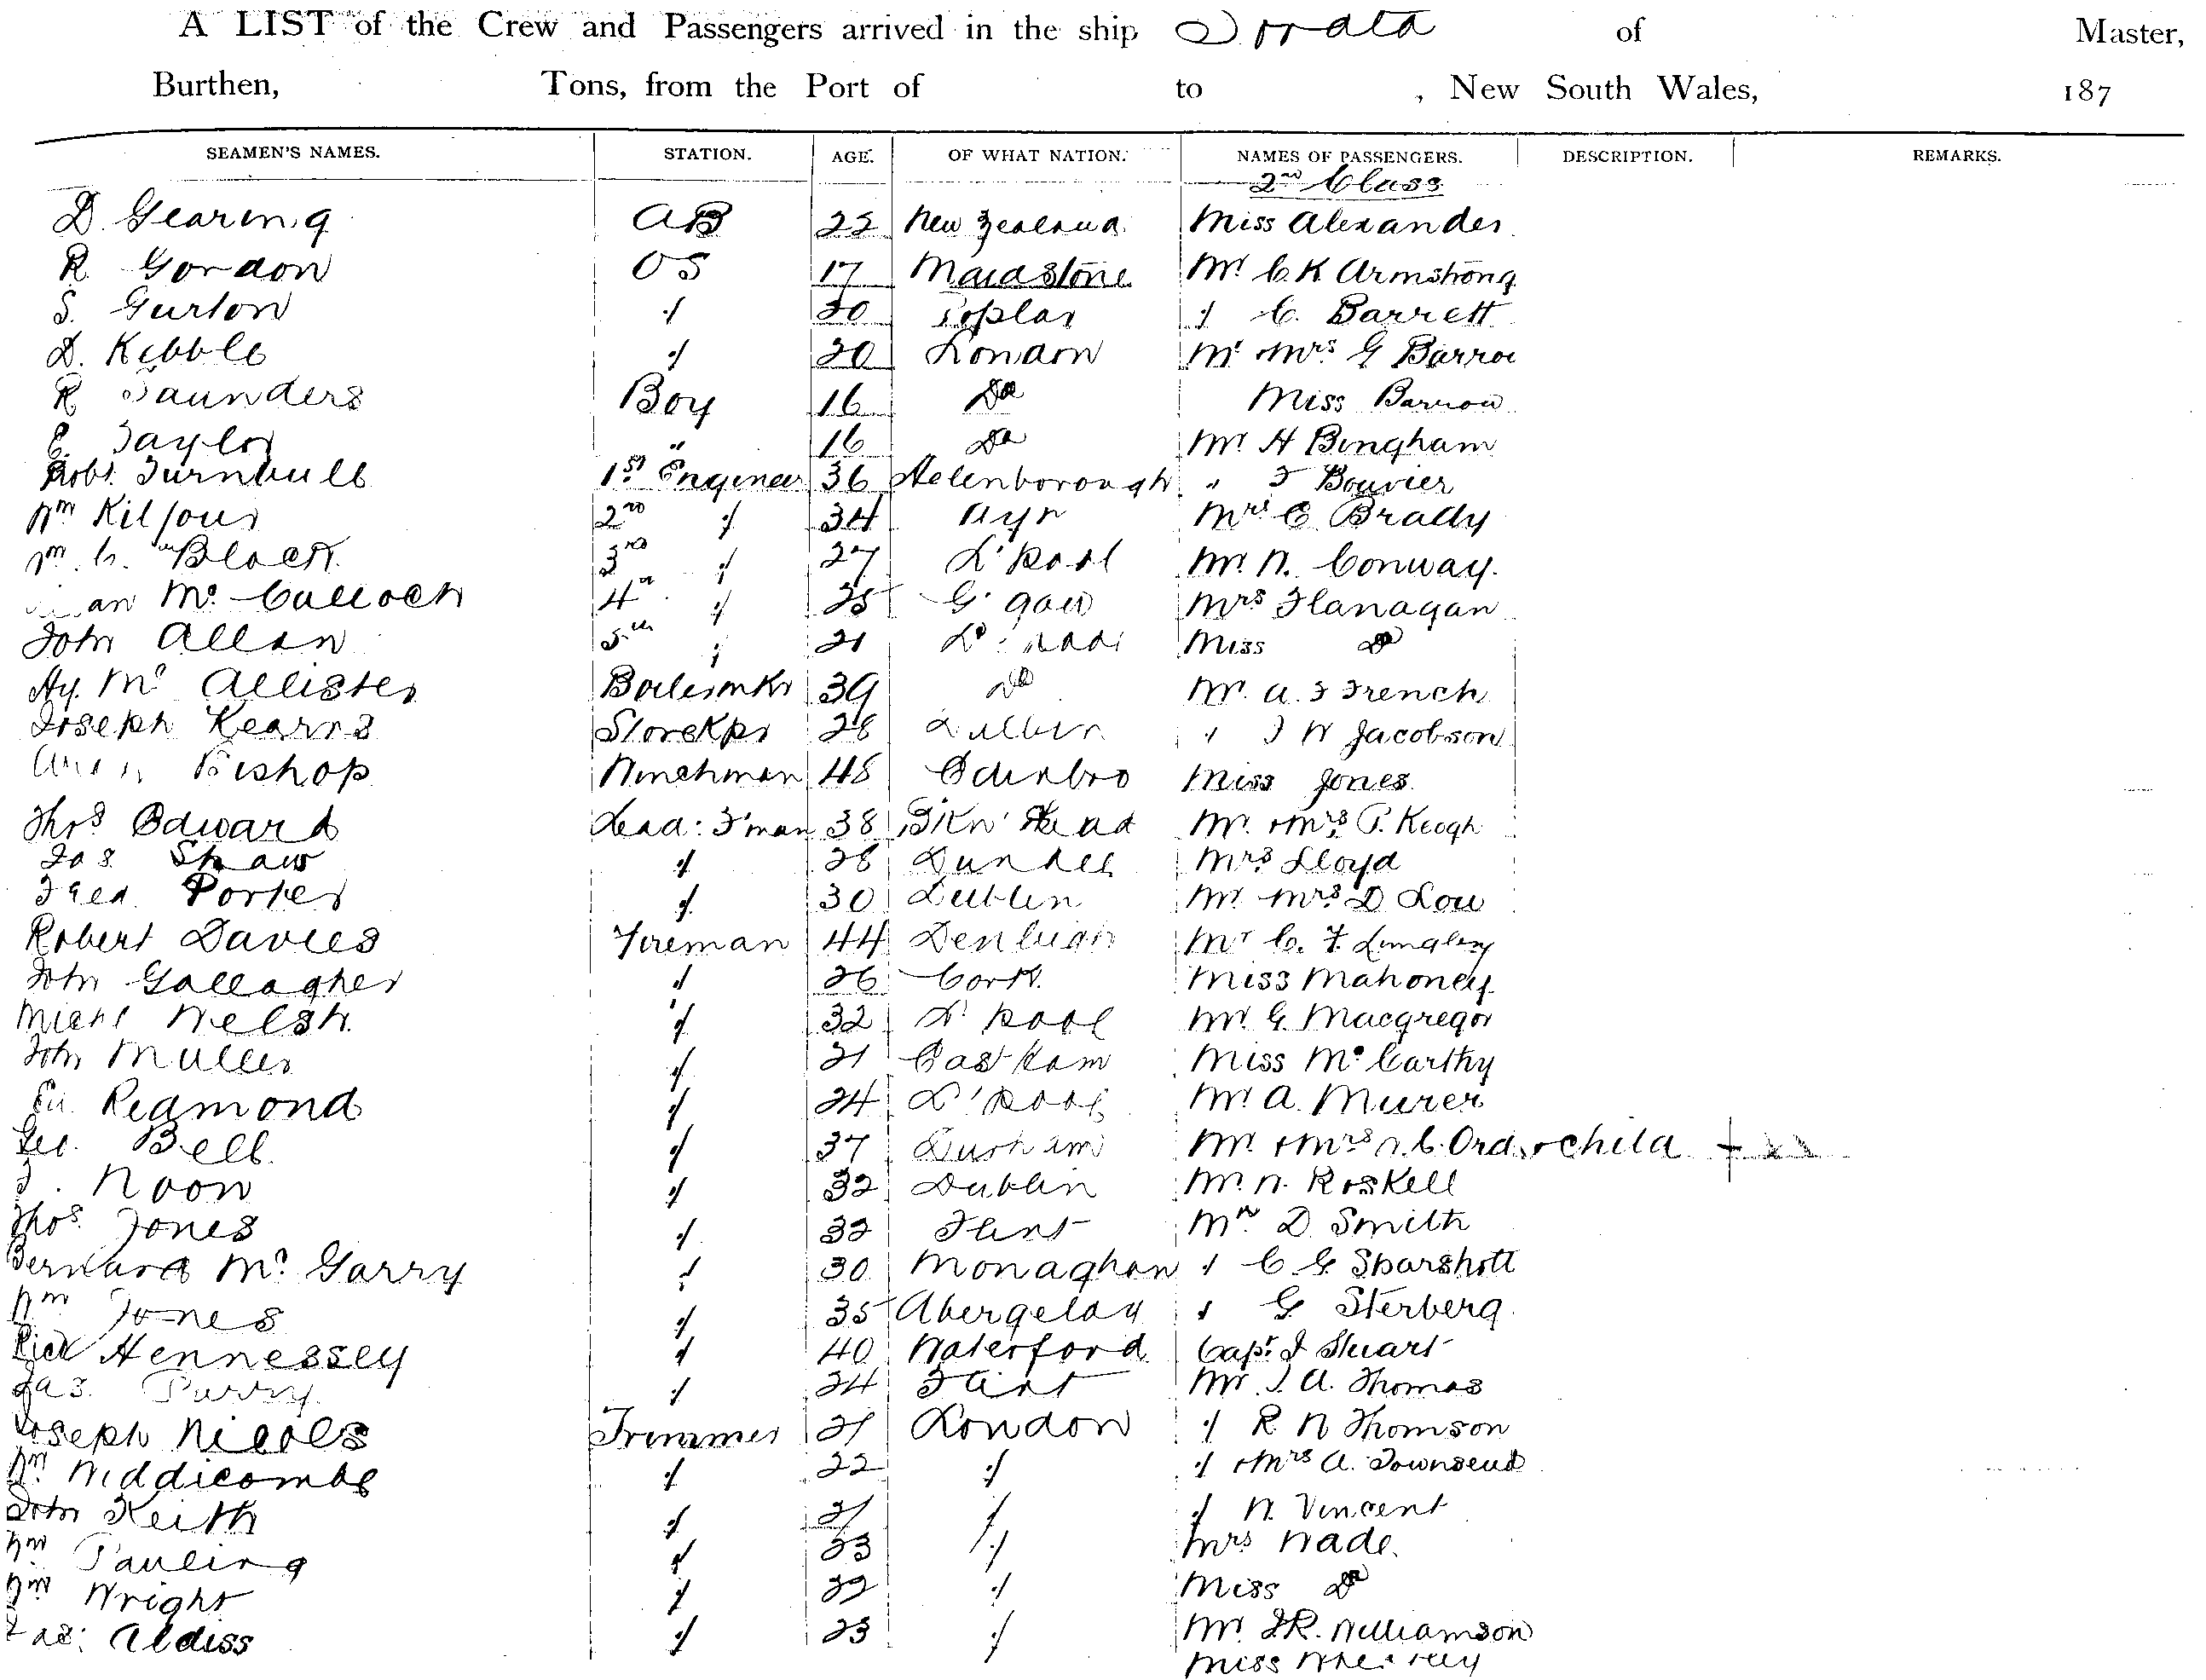 A LIST of the Crew and Passengers arrived in the ship Sorata of Master,
Burthen, Tons, from the Port of to , New South Wales, 187
SEAMEN'S NAMES. STATION. AGE. OF WHAT NATION. NAMES OF PASSENGERS. DESCRIPTION. REMARKS.
2nd Class
D. Gearing AB 22 New Zealand Miss Alexander
R. Gordon OS 17 Maidstone Mr. C. K Armstrong
S. Gurton " 20 Poplar " C. Barrett
D. Kebble " 20 London Mr Mrs G Barrow
R Saunders Boy 16 Do Miss Barrow
E. Taylor " 16 Do Mr. H Bingham
Robt. Turnbull 1st Engineer 36 " Bouvier
Wm Kilfour 2nd " 34 Ayr Mrs E Brady
Wm. C. Black 3rd " 27 L'pool Mr. W. Conway.
Mc. Culloch 4th " 25 G'gow Mrs Flanagan
John Allan 5th " 21 L'pool Miss Do
Hy. Mc Allister Boilermkr 39 Do Mr. A. F French
Joseph Kearns Storekpr 28 Dublin " J W Jacobson
Bishop Winchman 48 Edinbro Miss Jones
Thos Edward Lead: F'man 38 Bkn' Head Mr. & Mrs P. Keogh
Jas. Shaw " 28 Dundee Mrs Lloyd
Fred. Porter " 30 Dublin Mr. Mrs D Low
Robert Davies Fireman 44 Denbigh Mr C. F. Langley
John Gallagher " 26 Cork. Miss Mahoney
Michl Welsh " 32 L'pool Mr. G. Macgregor
John Muller " 21 East Ham Miss Mc Carthy
Redmond " 24 L'pool Mr A. Murer
Geo. Bell " 37 Durham Mr. & Mrs W. C. Ord & child
Noon " 32 Dublin Mr. W. Roskell
Thos. Jones " 32 Flint Mr. D. Smith
Bernard Mc. Garry " 30 Monaghan " C. G. Sparshott
Wm Jones " 35 Abergelay " G. Sterberg
Rich Hennessey " 40 Waterford Capt. J Stuart
Jas. Parry " 24 Flint Mr. J. A. Thomas
Joseph Nicols Trimmer 21 London " R W Thomson
Wm. Widdicombe " 22 " " & Mrs A. Townsend
John Keith " 21 " " W. Vincent
Wm Pauling " 23 " Mrs Wade.
Wm Wright " 22 " Miss Do
Jas: Aldiss " 23 " Mr. J. R. Williamson
Miss